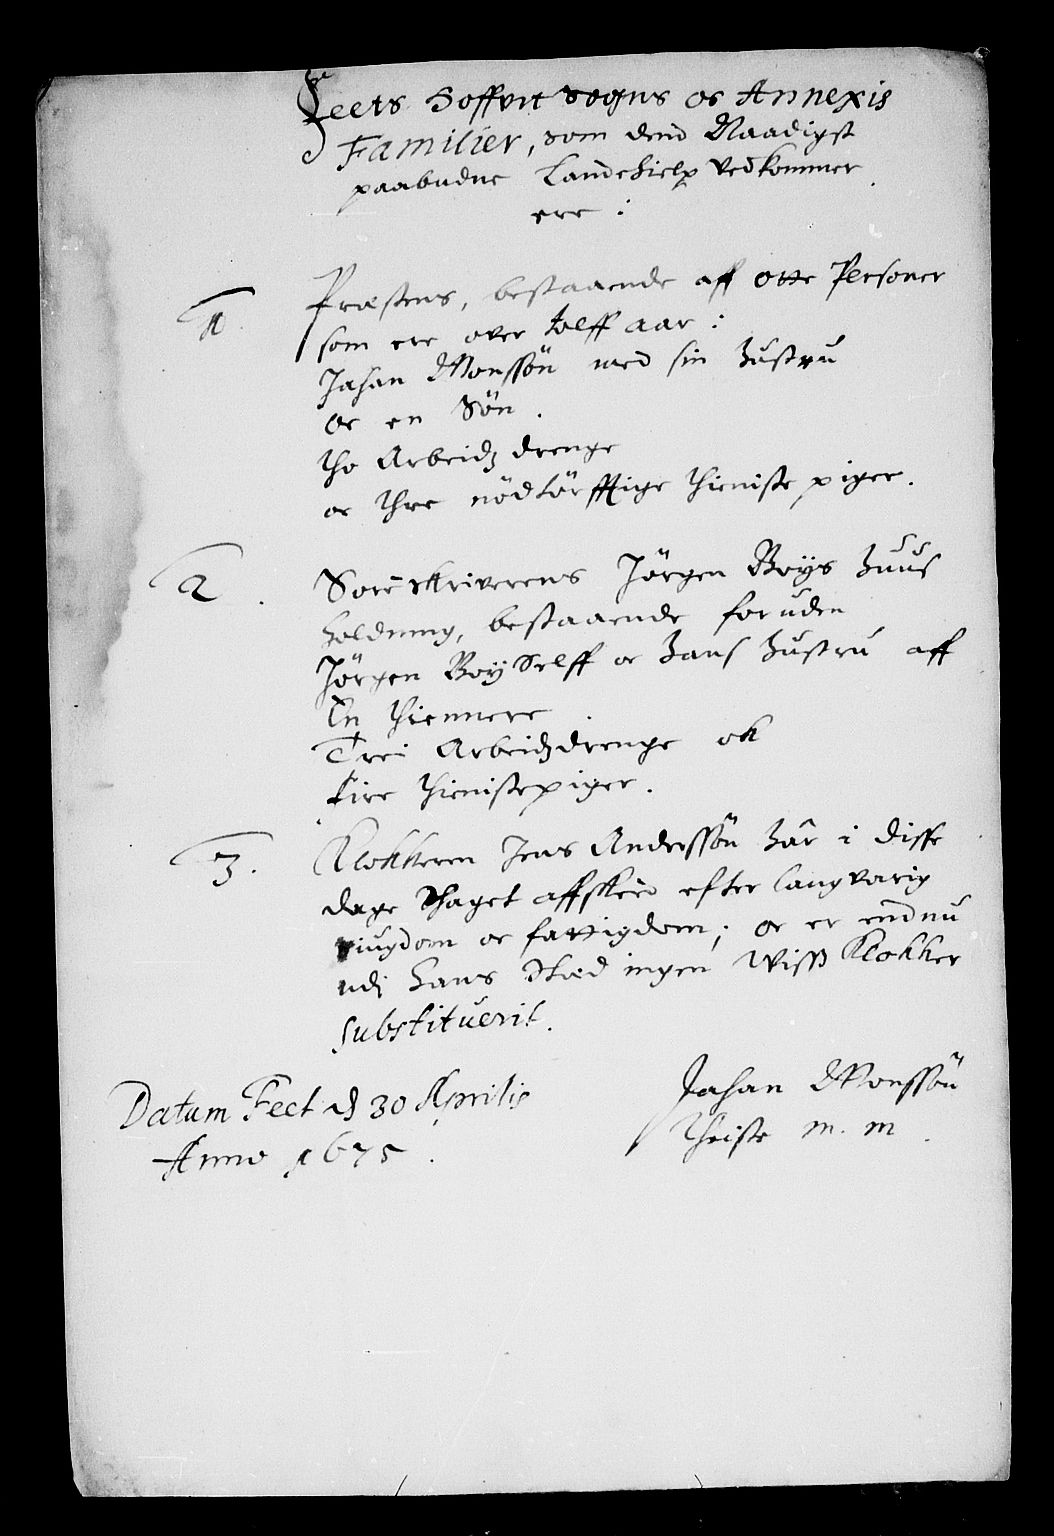 Feets Hoffvit Sogns oc Annexis
Familier, som dend Naadigst
paabudne Landehielp vedkommer
ere :
1.
Præstens, bestaaende aff otte Personer
som ere over tolff aar :
Johan Monssön med sin Hustru
oc en Sön .
tho Arbeidz drenge
oc thre nödtörfftige thieniste piger.
2.
Sorenskriverens Jörgen Boys Huus
holdning, bestaaende foruden
Jörgen Boy Selff oc Hans Hustru aff
En thiennere .
Trei Arbeidzdrenge ok
fire thienistepiger.
3.
Klokkeren Jens Anderssön Har i disse
dage thaget affskeed efter langvarig
siugdom oc fattigdom; oc er endnu
udi hans sted ingen Wiss Klokker
substituerit.
Datum Feet d 30 Aprilis
Anno 1675 .
Johan Monssön
Theiste m. m .